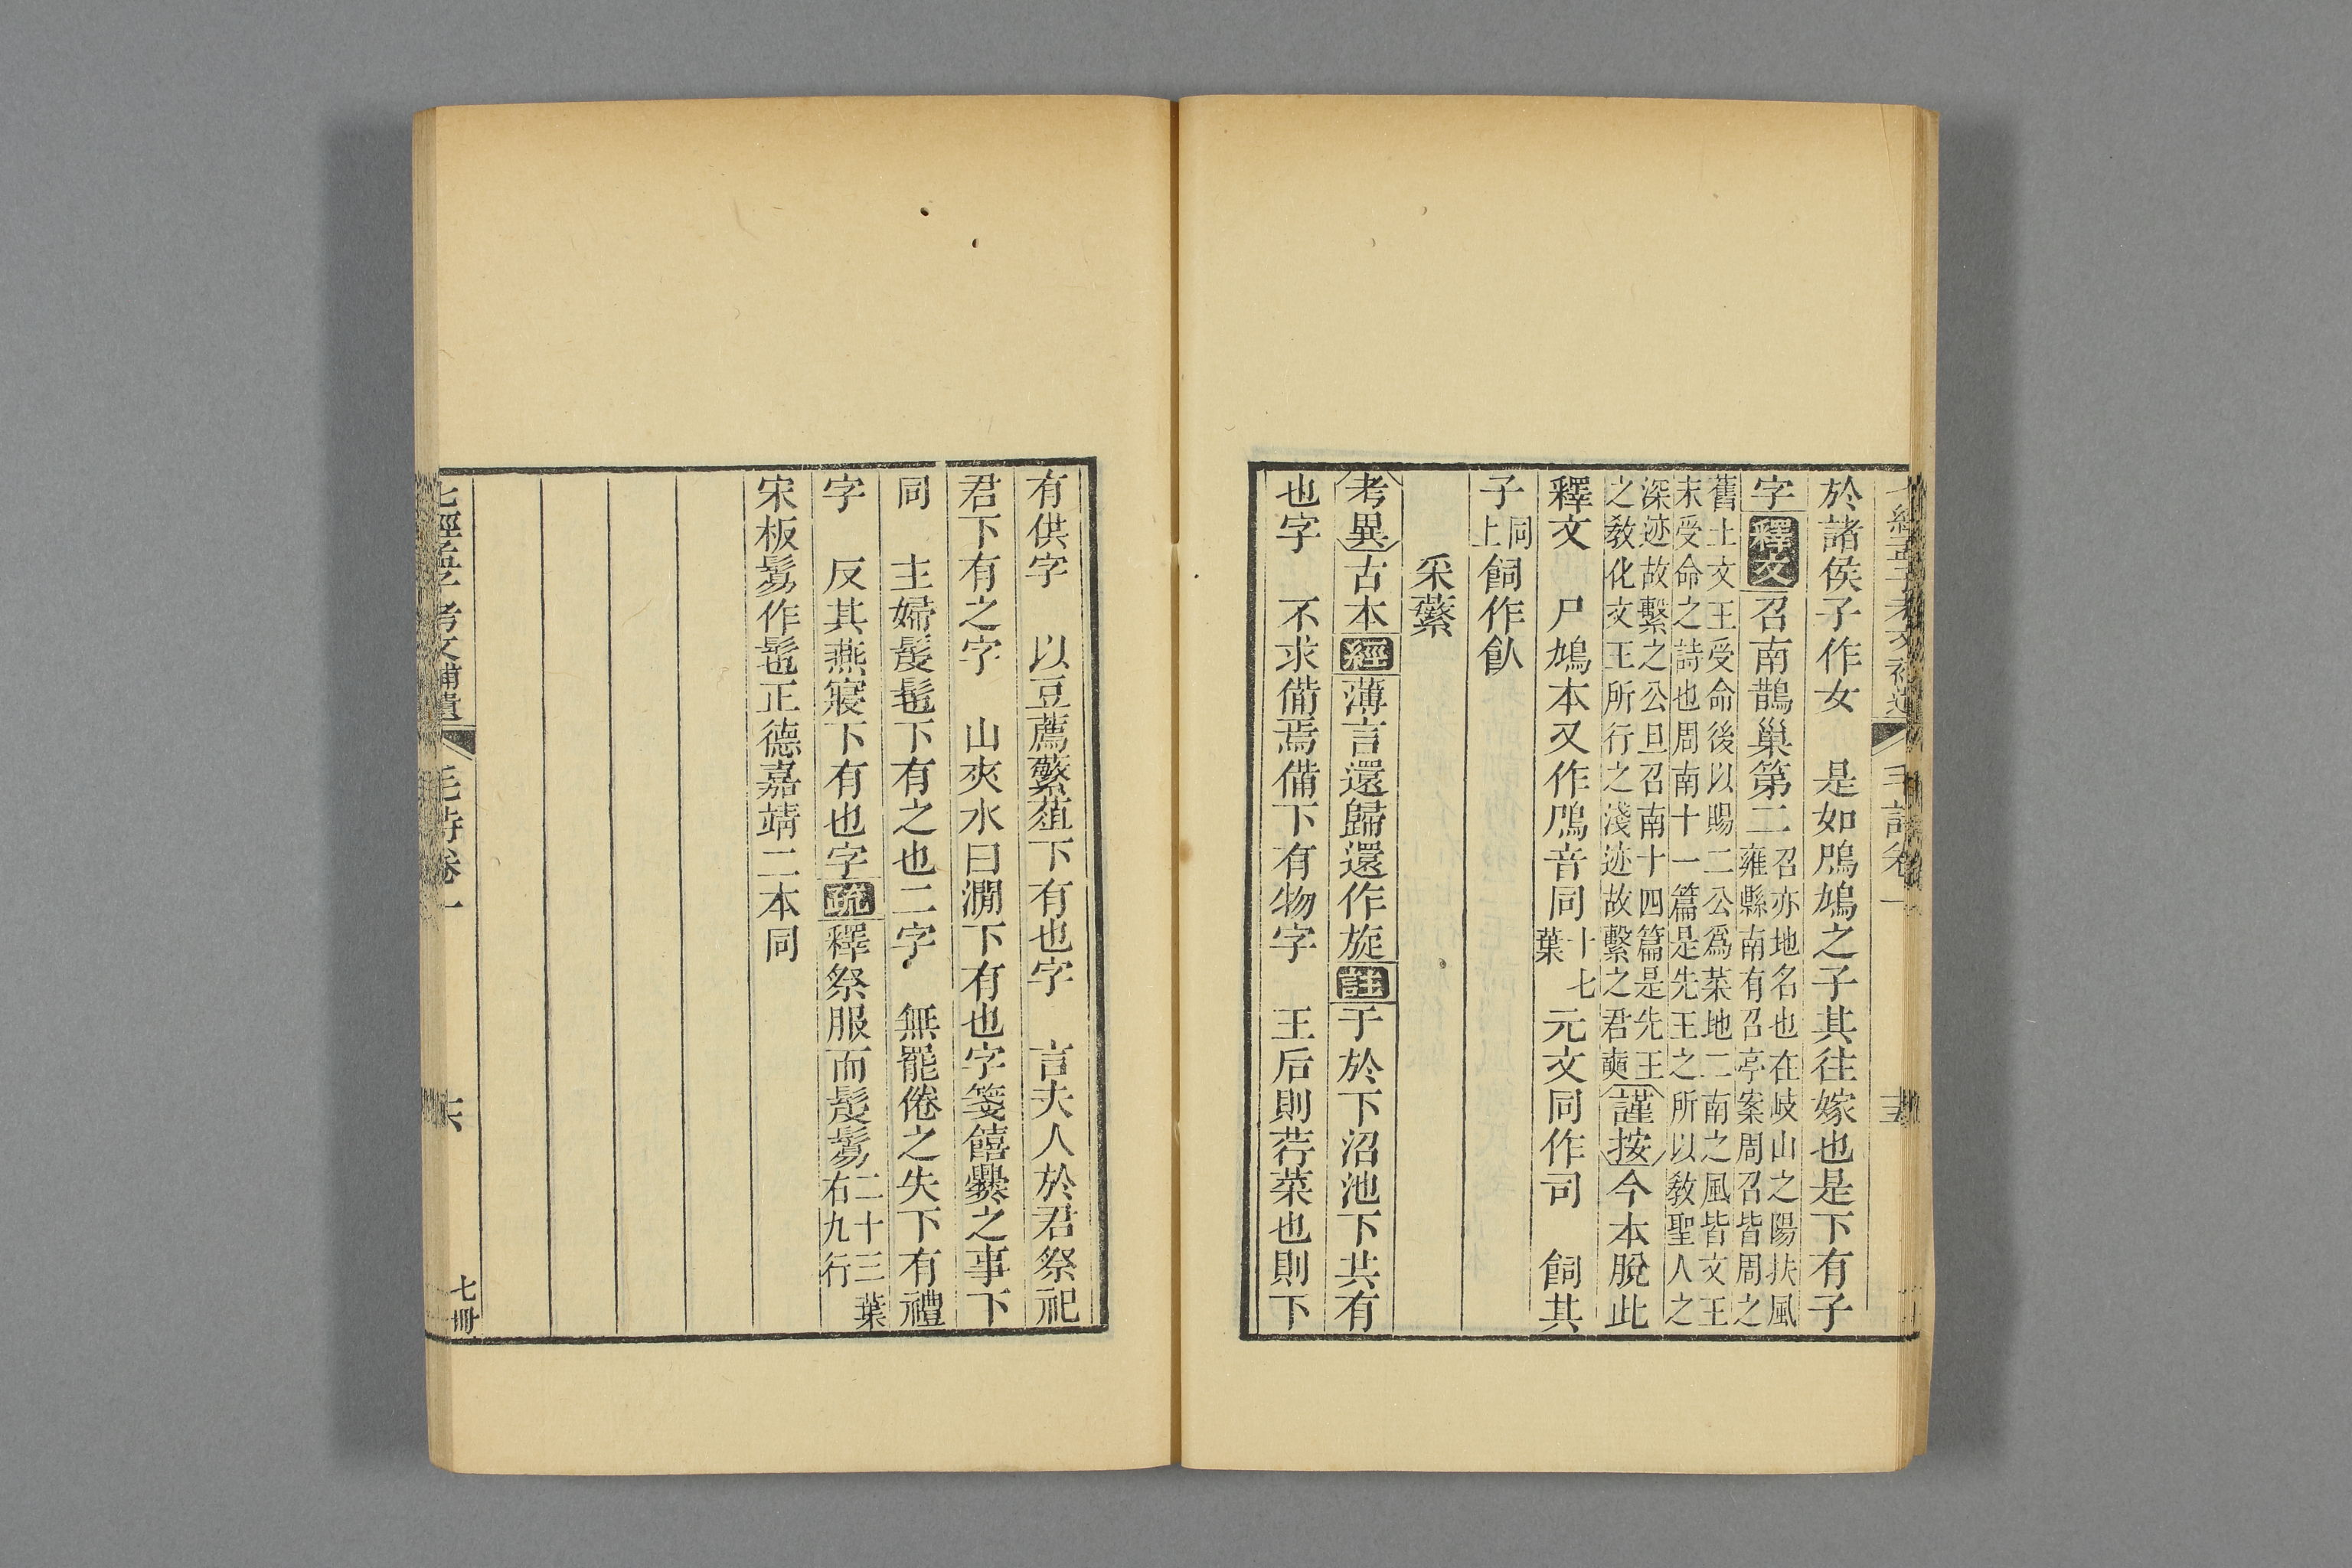 七經孟子考文補遺 毛詩卷一
於諸侯子作女 是如鳲鳩之子其往嫁也是下有子
字釋文召南鵲巢第二召亦地名也在岐山之陽扶風
雍縣南有召亭案周召皆周之
舊土文王受命後以賜二公爲菜地二南之風皆文王
末受命之詩也周南十一篇是先王之所以敎聖人之
深迹故繫之公旦召南十四篇是先王
之敎化文王所行之淺迹故繫之君奭謹按今本脫此
釋文 尸鳩本又作鳲音同十七
葉元文同作司 飼其
子同
上飼作飤
采蘩
考異古本經薄言還歸還作旋註于於下沼池下共有
也字 不求備焉備下有物字 王后則荇菜也則下
有供字 以豆薦蘩葅下有也字 言夫人於君祭祀
君下有之字 山夾水曰澗下有也字箋饎爨之事下
同 主婦髲髢下有之也二字 無罷倦之失下有禮
字 反其燕寢下有也字疏釋祭服而髲鬄二十三葉
右九行
宋板鬄作髢正德嘉靖二本同
七經孟子考文補遺 毛詩卷一 六 七冊